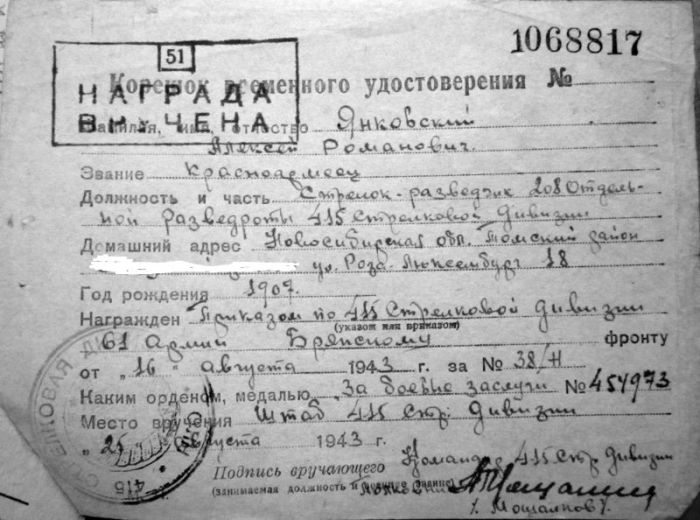 1068817
51
НАГРАДА
ВРУЧЕНА
Корешок временного удостоверения №
Фамилия, имя, отчество Янковский
Алексей Романович.
Звание красноармеец
Должность и часть Стрелок-разведчик 208 Отдель-
ной разведроты 415 Стрелковой дивизии
Домашний адрес Новосибирская обл. Томский район
ул. Роза-Люксембург 18
Год рождения 1907.
Награжден Приказом по 415 Стрелковой дивизии
(указом или приказом)
61 Армии Брянскому фронту
от „16" августа 1943 г. за № 38/н
Каким орденом, медалью „За боевые заслуги № 454973
Место вручения Штаб 415 Стр. дивизии
„25" августа 1943 г.
Подпись вручающего Командир 415 Стр. дивизии
(занимаемая должность и военное звание) полковник
/. Мощалков/.
СТРЕЛКОВАЯ
415